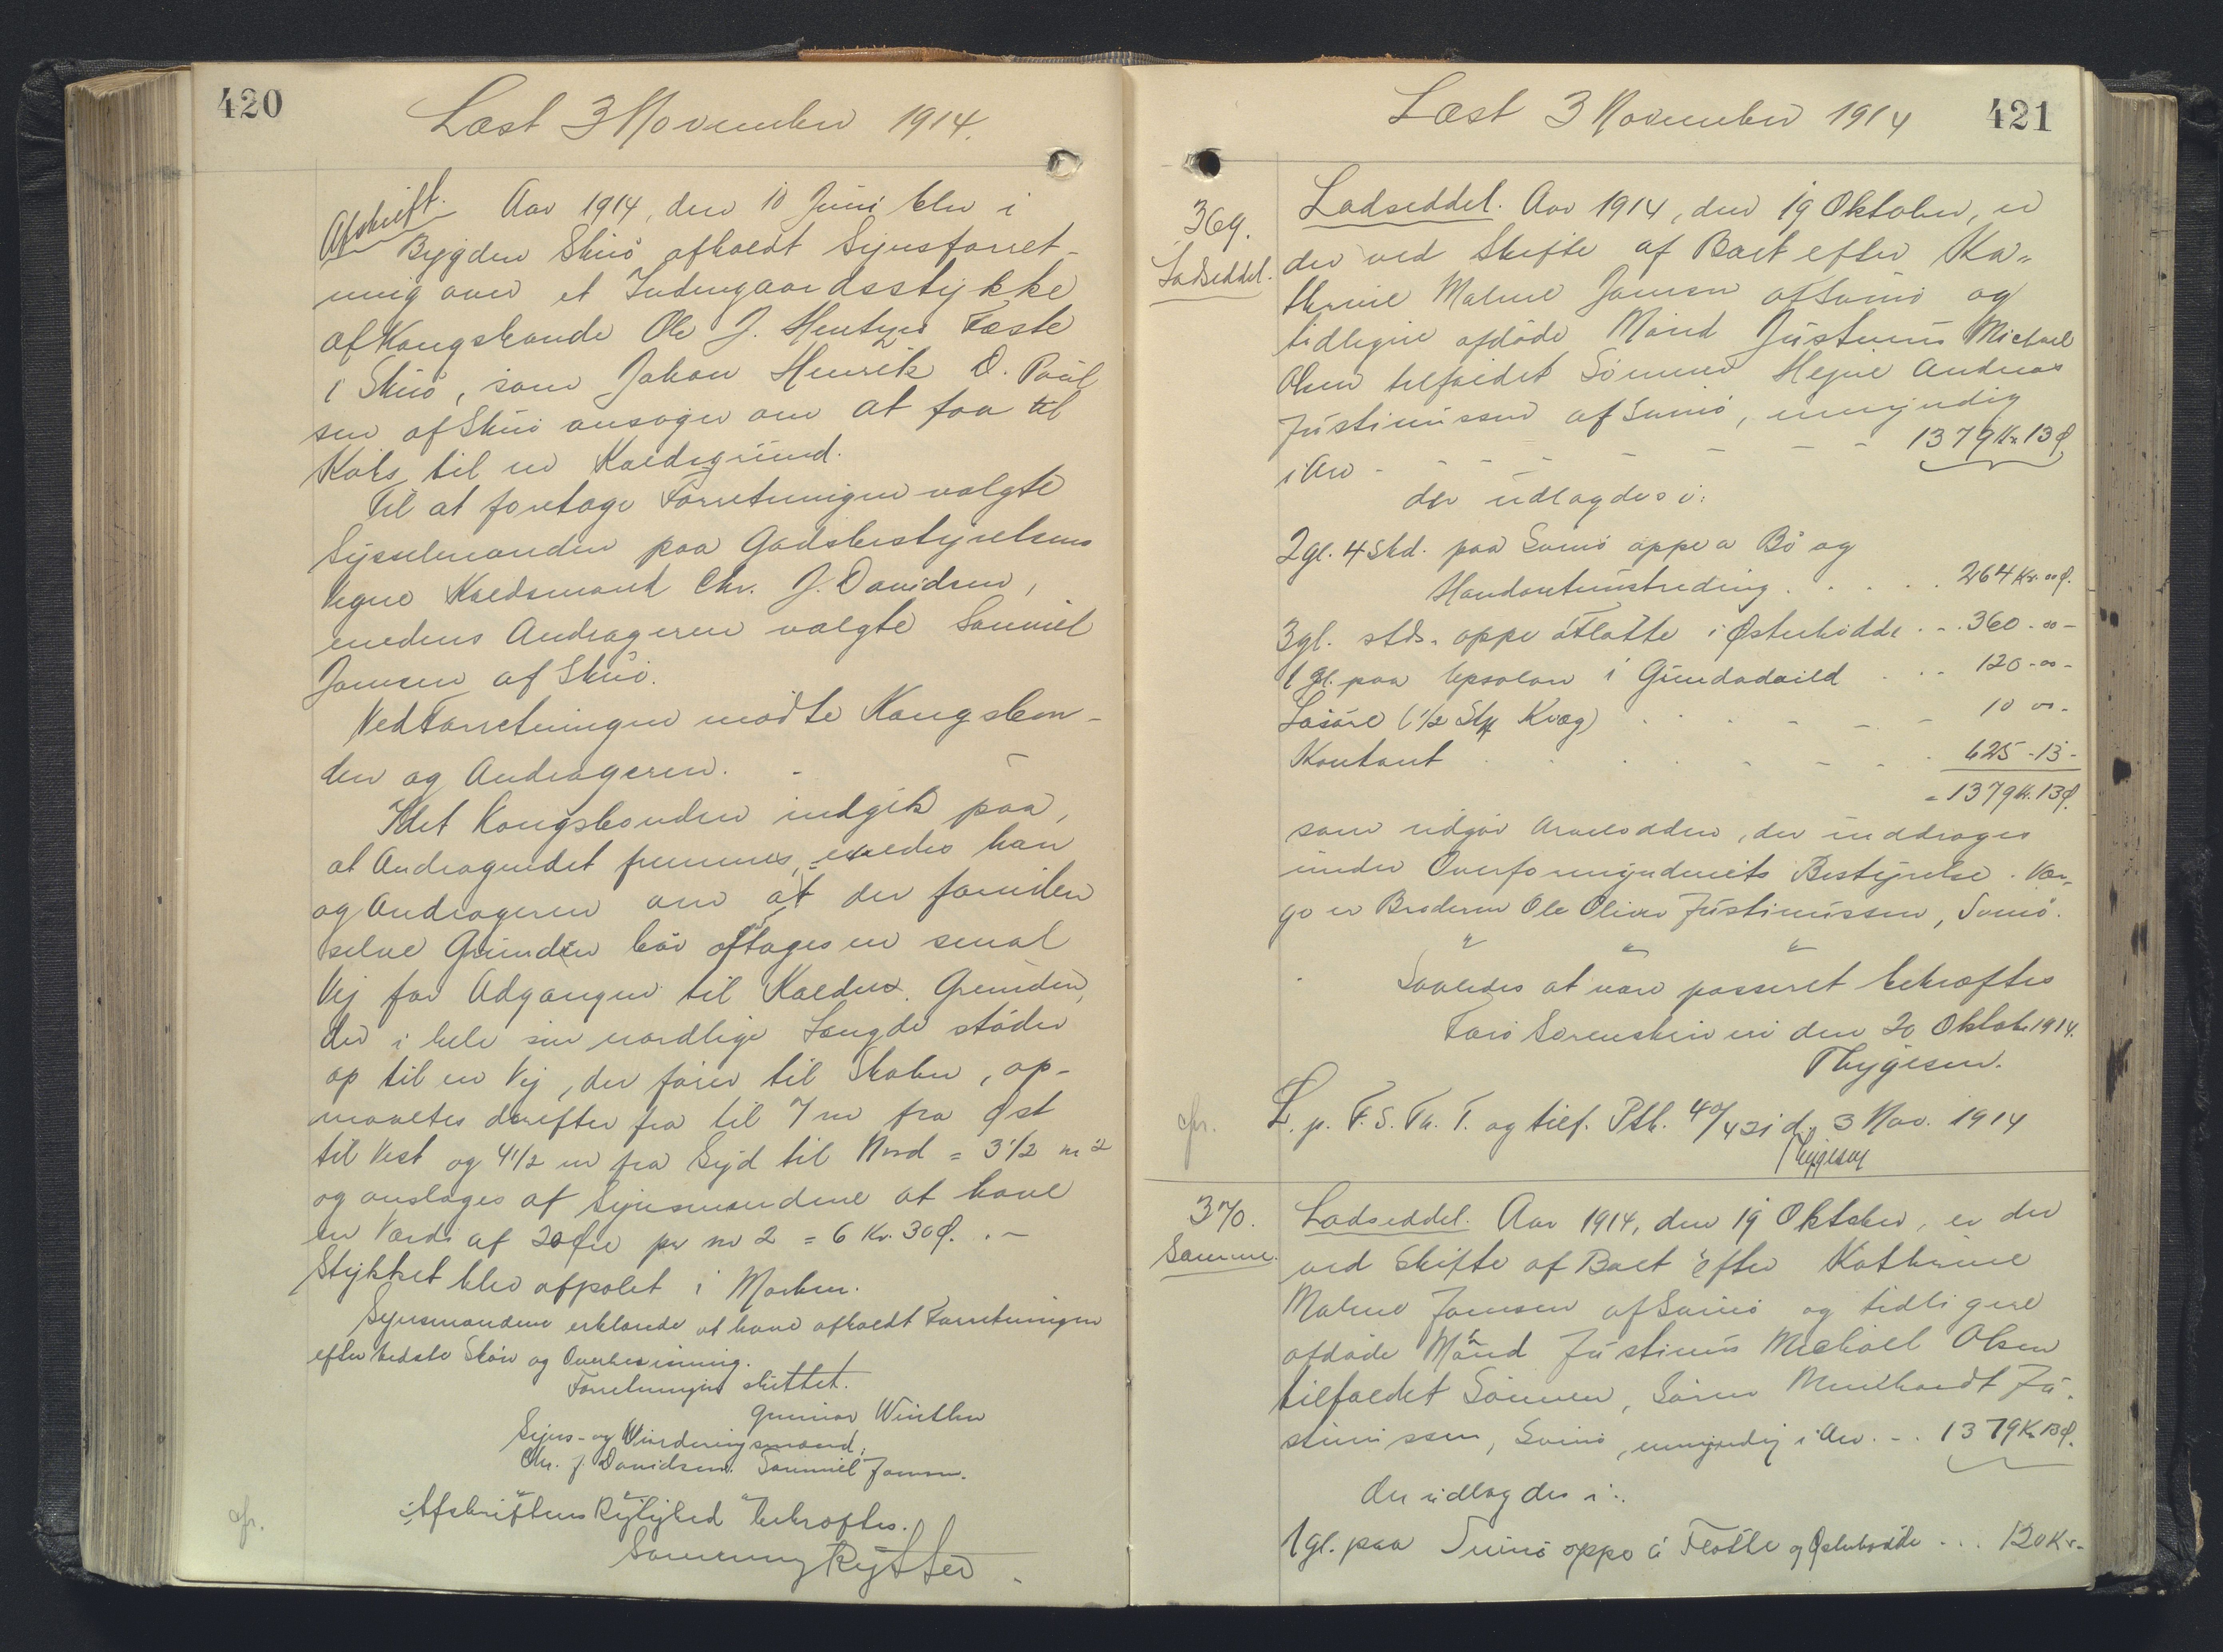 420
Læst 3 November 1914.
Afskrift. Aar 1914, den 10 Juni blev i
Bygden Skuø afholdt Synsforret-
ning over et Indengaardsstykke
af Kongsbonde Ole J. Hentzes Fæste
i Skuø, som Johan Henrik D. Poul
sen af Skuø ansøger om at faa til
Købs til en Kaldsgrund.
Til at foretage Forretningen valgte
Sysselmanden paa Godsbestyrelsens
Vegne Kaldsmand Chr. J. Davidsen,
medens Andrageren valgte Samuel
Joensen af Skuø.
Ved Forretningen mødte Kongsbon-
den og Andrageren.
Idet Kongsbonden indgik paa,
at Andragendet fremmes, enedes han
og Andrageren om at der foruden
selve Grunden bør aftages en smal
Vej for Adgangen til Kælden. Grunden,
der i hele sin nordlige Længde støder
op til en Vej, der fører til Skolen, op-
maaltes derefter fra til 7 m fra Øst
til Vest og 4 1/2 m fra Syd til Nord = 31/2 m 2
og ansloges af Synsmændene at have
en Værdi af 20 Øre pr m 2 = 6 Kr. 30 Ø. . -
Stykket blev afpælet i Marken.
Synsmændene erklærede at have afholdt Forretningen
efter bedste Skøn og Overbevisning.
Forretningen sluttet.
Gunnar Winther
Syns- og Vurderingsmænd:
Chr. J. Davidsen. Samuel Joensen.
Afskriftens Rigtighed bekræftes.
Rytter
cfr.
Læst 3 November 1914
421
369.
Lodseddel.
Lodseddel. Aar 1914, den 19 Oktober, er
der ved Skifte af Boet efter Ka-
thrine Malene Joensen af Sumø og
tidligere afdøde Mand Justinus Michael
Olsen tilfaldet Sønnen Hejne Andreas
Justinussen af Sumø, umyndig
i Arv - - - - - - - 1379 Kr 13 Ø
der udlagdes i:
2 gl. 4 Skd. paa Sumø oppe a Bø og
. . . . 264 Kr. 00 Ø.
3 gl. stds. oppe á Fløtte i Østerhødde . - . 360 - 00 -
1 gl. paa i . . . 120 - 00 -
Løsøre (1/2 Stk Kvæg) . . . - - - 10 00 -
Kontant . . . . - - - . 625 - 13 -
= 1379 Kr. 13 Ø.
som udgør Arvelodden, der inddrages
under Overformynderiets Bestyrelse. Vær-
ge er Broderen Ole Oliver Justinussen, Sumø.
" " "
Saaledes at være passeret bekræftes
Færø Sorenskriveri den 20 Oktob. 1914.
Thygesen.
cfr.
L. p. F. S. Th. T. og tilf. Ptk. 40/421 d. 3 Nov. 1914
Thygesen
370.
Samme.
Lodseddel. Aar 1914, den 19 Oktober, er der
ved Skifte af Boet efter Kathrine
Malene Joensen af Sumø og tidligere
afdøde Mand Justinus Michael Olsen
tilfaldet Sønnen, Søren Meinhardt Ju-
stinussen, Sumø, umyndig i Arv. - . 1379 Kr 13 Ø.
der udlagdes i:.
1 gl. paa Sumø oppe á Fløtte og Østerhødde . . . 120 Kr. -